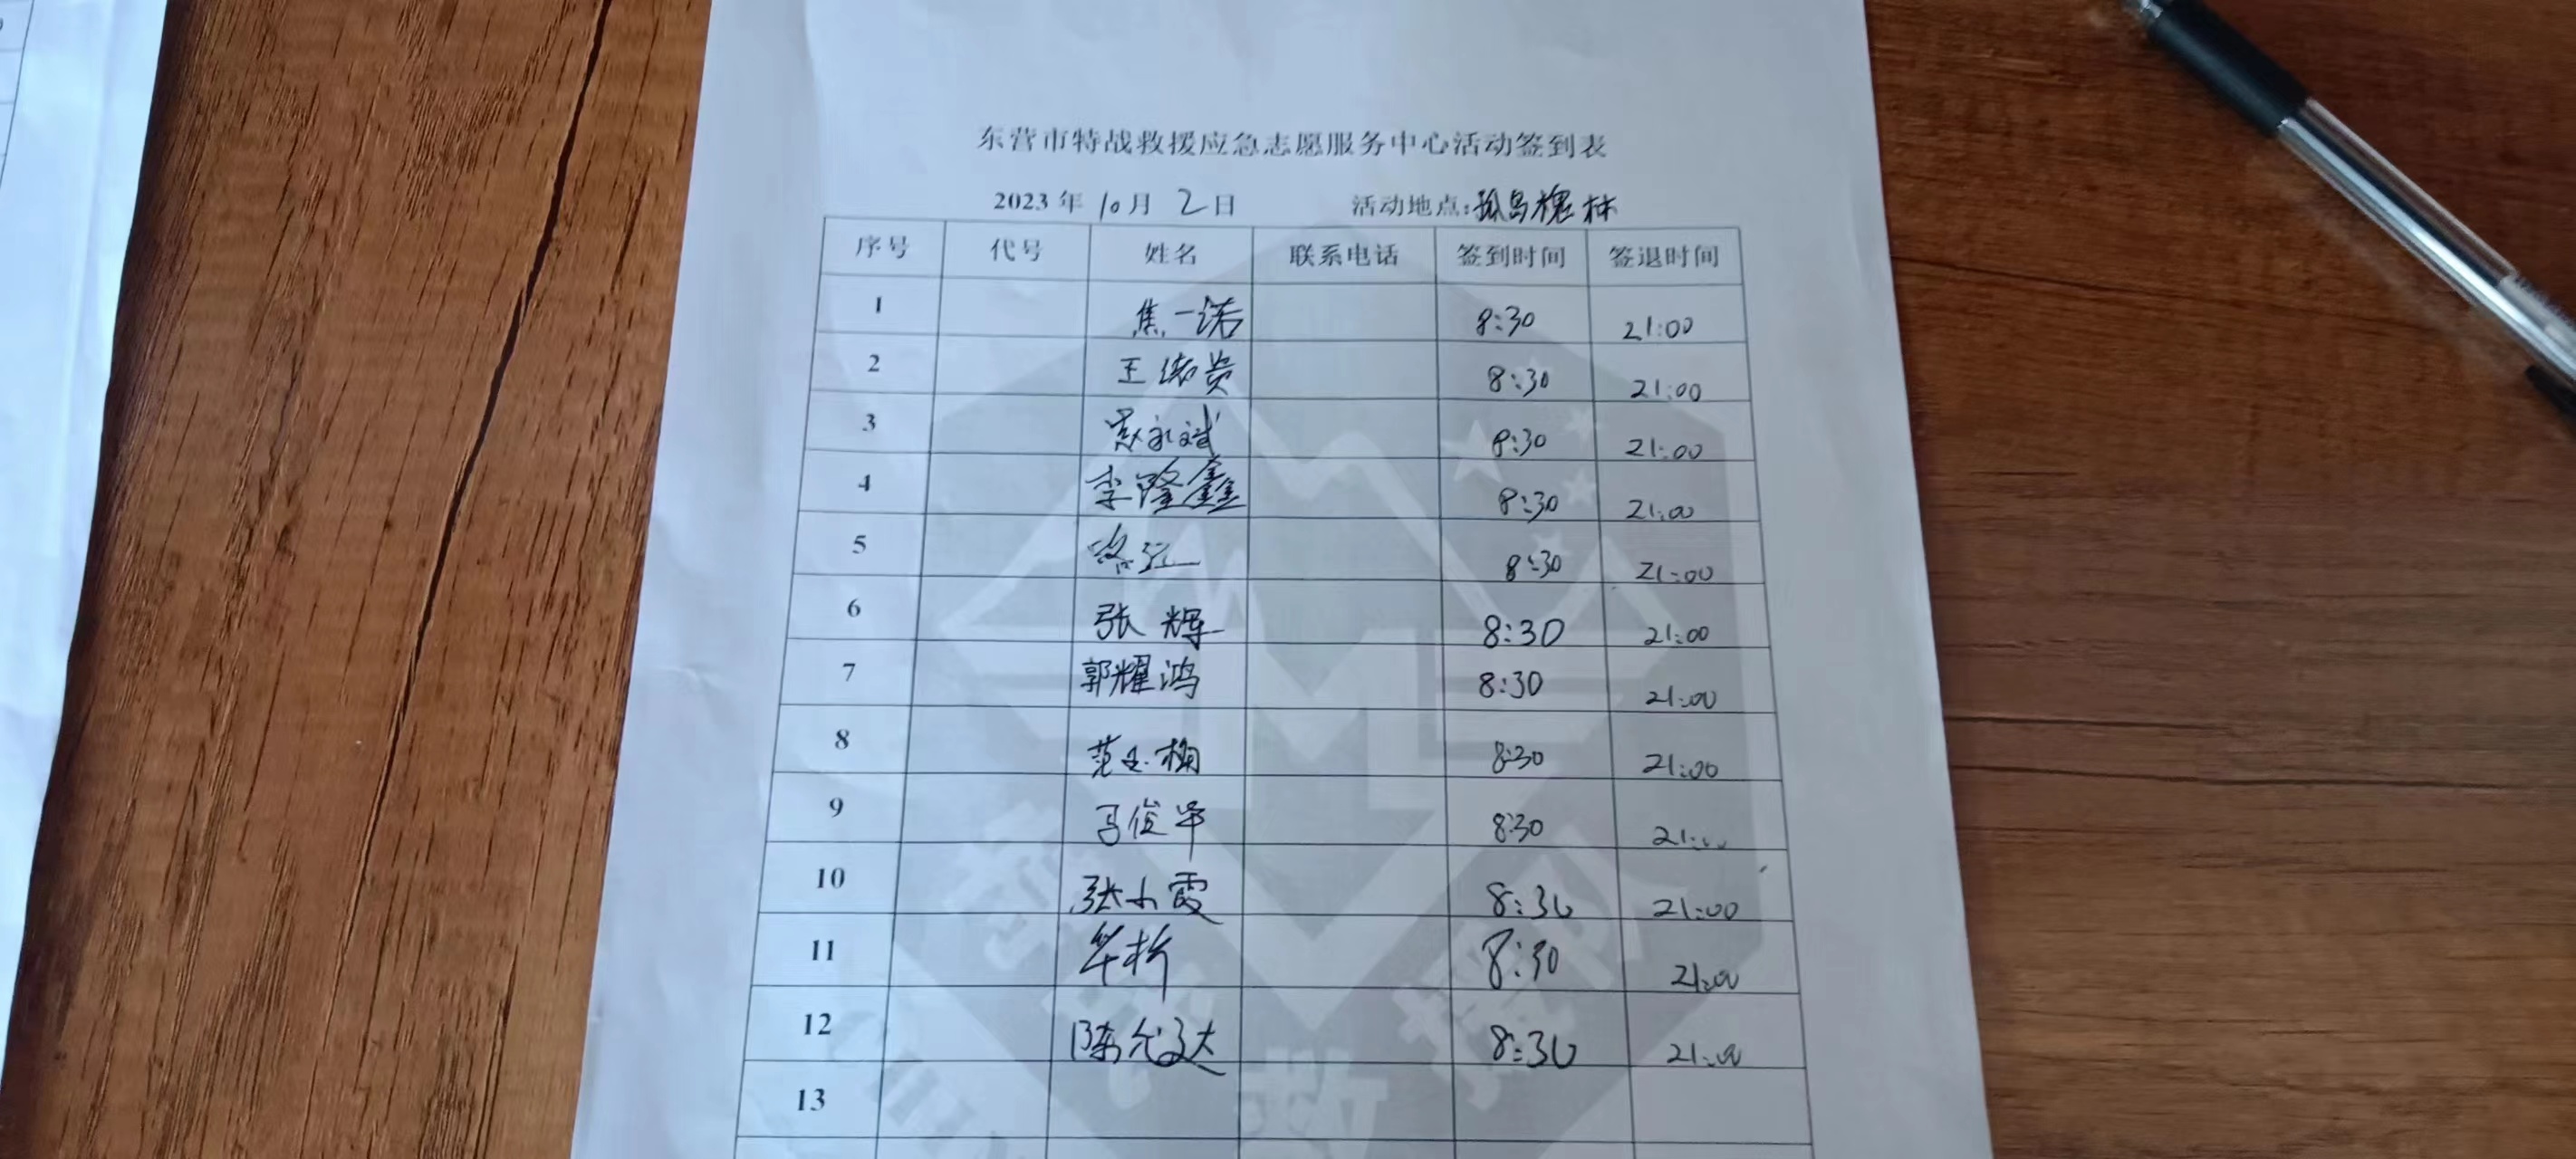 东营市特战救援应急志愿服务中心活动签到表
2023 年 10 月 2 日 活动地点:孤岛槐林
序号 代号 姓名 联系电话 签到时间 签退时间
1 焦一诺 8:30 21:00
2 王德贵 8:30 21:00
3 8:30 21:00
4 李隆鑫 8:30 21:00
5 8:30 21:00
6 张辉 8:30 21:00
7 郭耀鸿 8:30 21:00
8 范玉 8:30 21:00
9 马俊 8:30 21:00
10 张小霞 8:30 21:00
11 8:30 21:00
12 陈允达 8:30 21:00
13